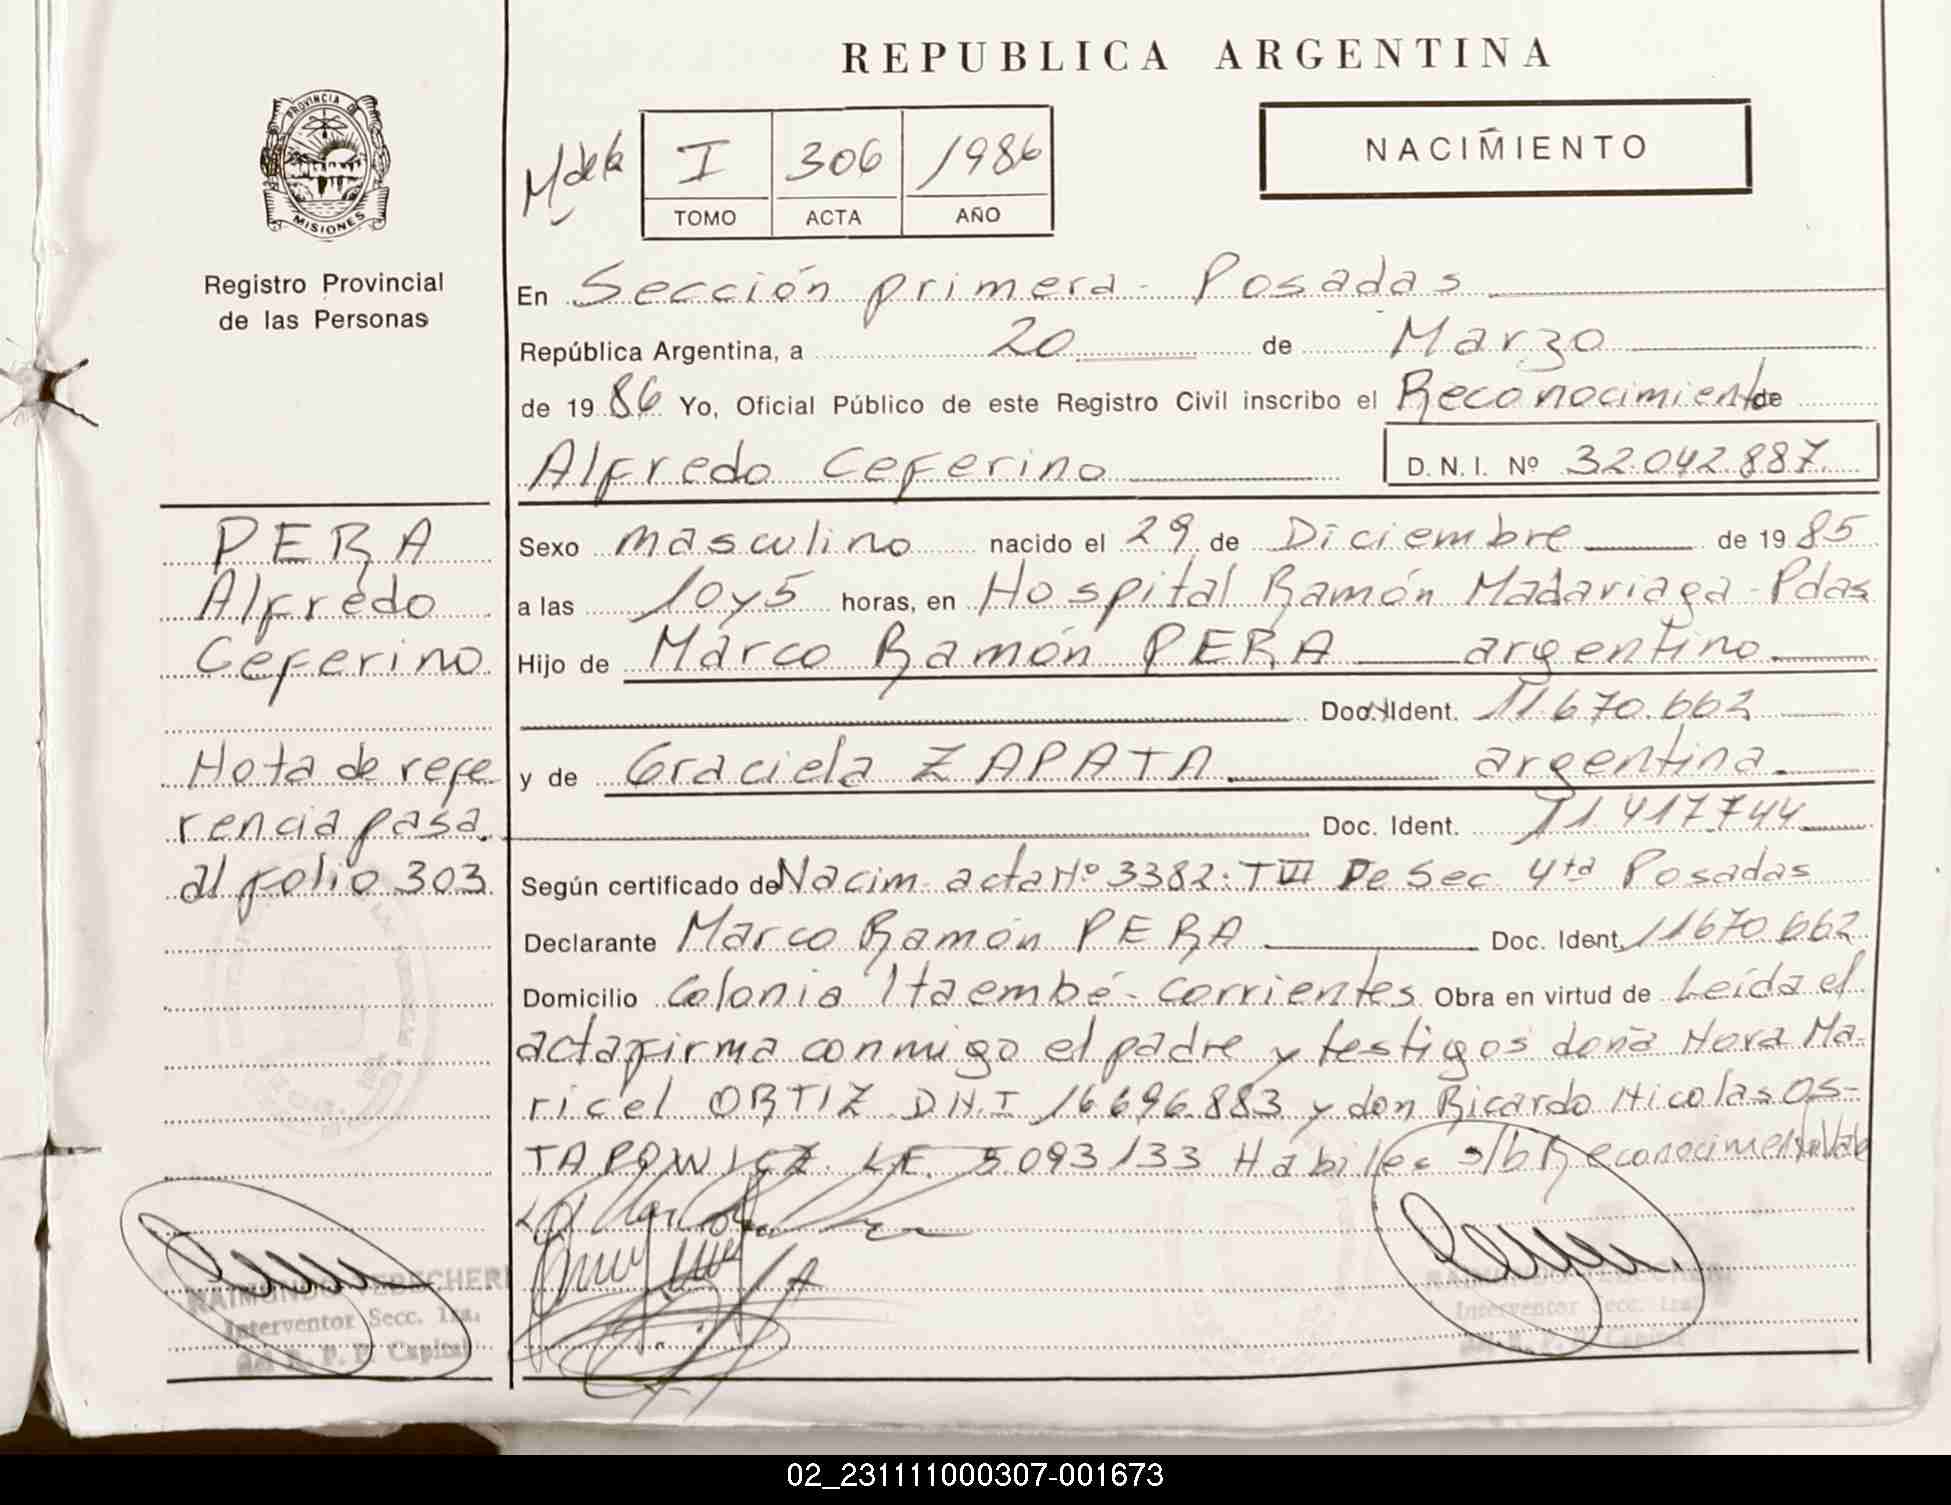 REPUBLICA ARGENTINA
PROVINCIA DE
MISIONES
I 306 1986
TOMO ACTA AÑO
NACIMIENTO
Registro Provincial
de las Personas
En Sección primera - Posadas
República Argentina, a 20 de Marzo
de 1986 Yo, Oficial Público de este Registro Civil inscribo el Reconocimiento de
Alfredo Ceferino D. N. I. Nº 32.042.887.
PERA
Alfredo
Ceferino
Nota de refe
rencia pasa.
al folio 303
Sexo masculino nacido el 29 de Diciembre de 1985
a las 10 y 5 horas, en Hospital Ramón Madariaga - Pdas
Hijo de Marco Ramón PERA argentino
Doc. Ident. 11.670.662
y de Graciela ZAPATA argentina.
Doc. Ident. 11.417.744
Según certificado de Nacim. acta Nº 3382. T VII De Sec 4ta Posadas
Declarante Marco Ramón PERA Doc. Ident. 11670.662
Domicilio Colonia Itaembé - Corrientes Obra en virtud de Leída el
acta firma conmigo el padre y testigos doña Nora Ma-
ricel ORTIZ DNI 16.696.883 y don Ricardo Nicolas OS-
TAPOWICZ. LE. 5093133 Habiles s/b Reconocimiento Vale
RAIMUNDO
Interventor Secc. 1ra.
del R. P. P. Capital
Interventor Secc. 1ra.
02_231111000307-001673